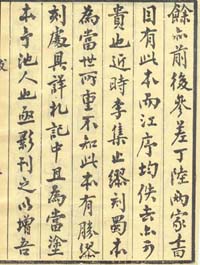 餘亦前後參差丁陸兩家書
目有此本而江序均佚去亦可
貴也近時李集止繆刻蜀本
為當世所重不知此本有勝繆
刻處具詳札記中且為當塗
本予池人也亟影刊之以增吾